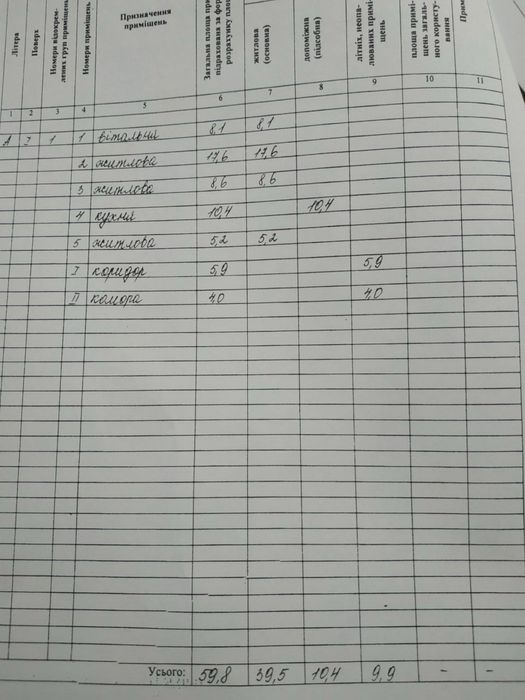 Літера
Поверх
Номери відокрем-
лених груп приміщень
Номери приміщень
Призначення
приміщень
Загальна площа при
підрахована за фор
розрахунку площ
житлова
(основна)
допоміжна
(підсобна)
літніх, неопа-
люваних примі-
щень
площа примі-
щень загаль-
ного користу-
вання
Прим
1 2 3 4 5 6 7 8 9 10 11
А І 1 1 вітальня 8,1 8,1
2 житлова 17,6 17,6
3 житлова 8,6 8,6
4 кухня 10,4 10,4
5 житлова 5,2 5,2
І коридор 5,9 5,9
ІІ комора 4,0 4,0
Усього: 59,8 39,5 10,4 9,9 - -